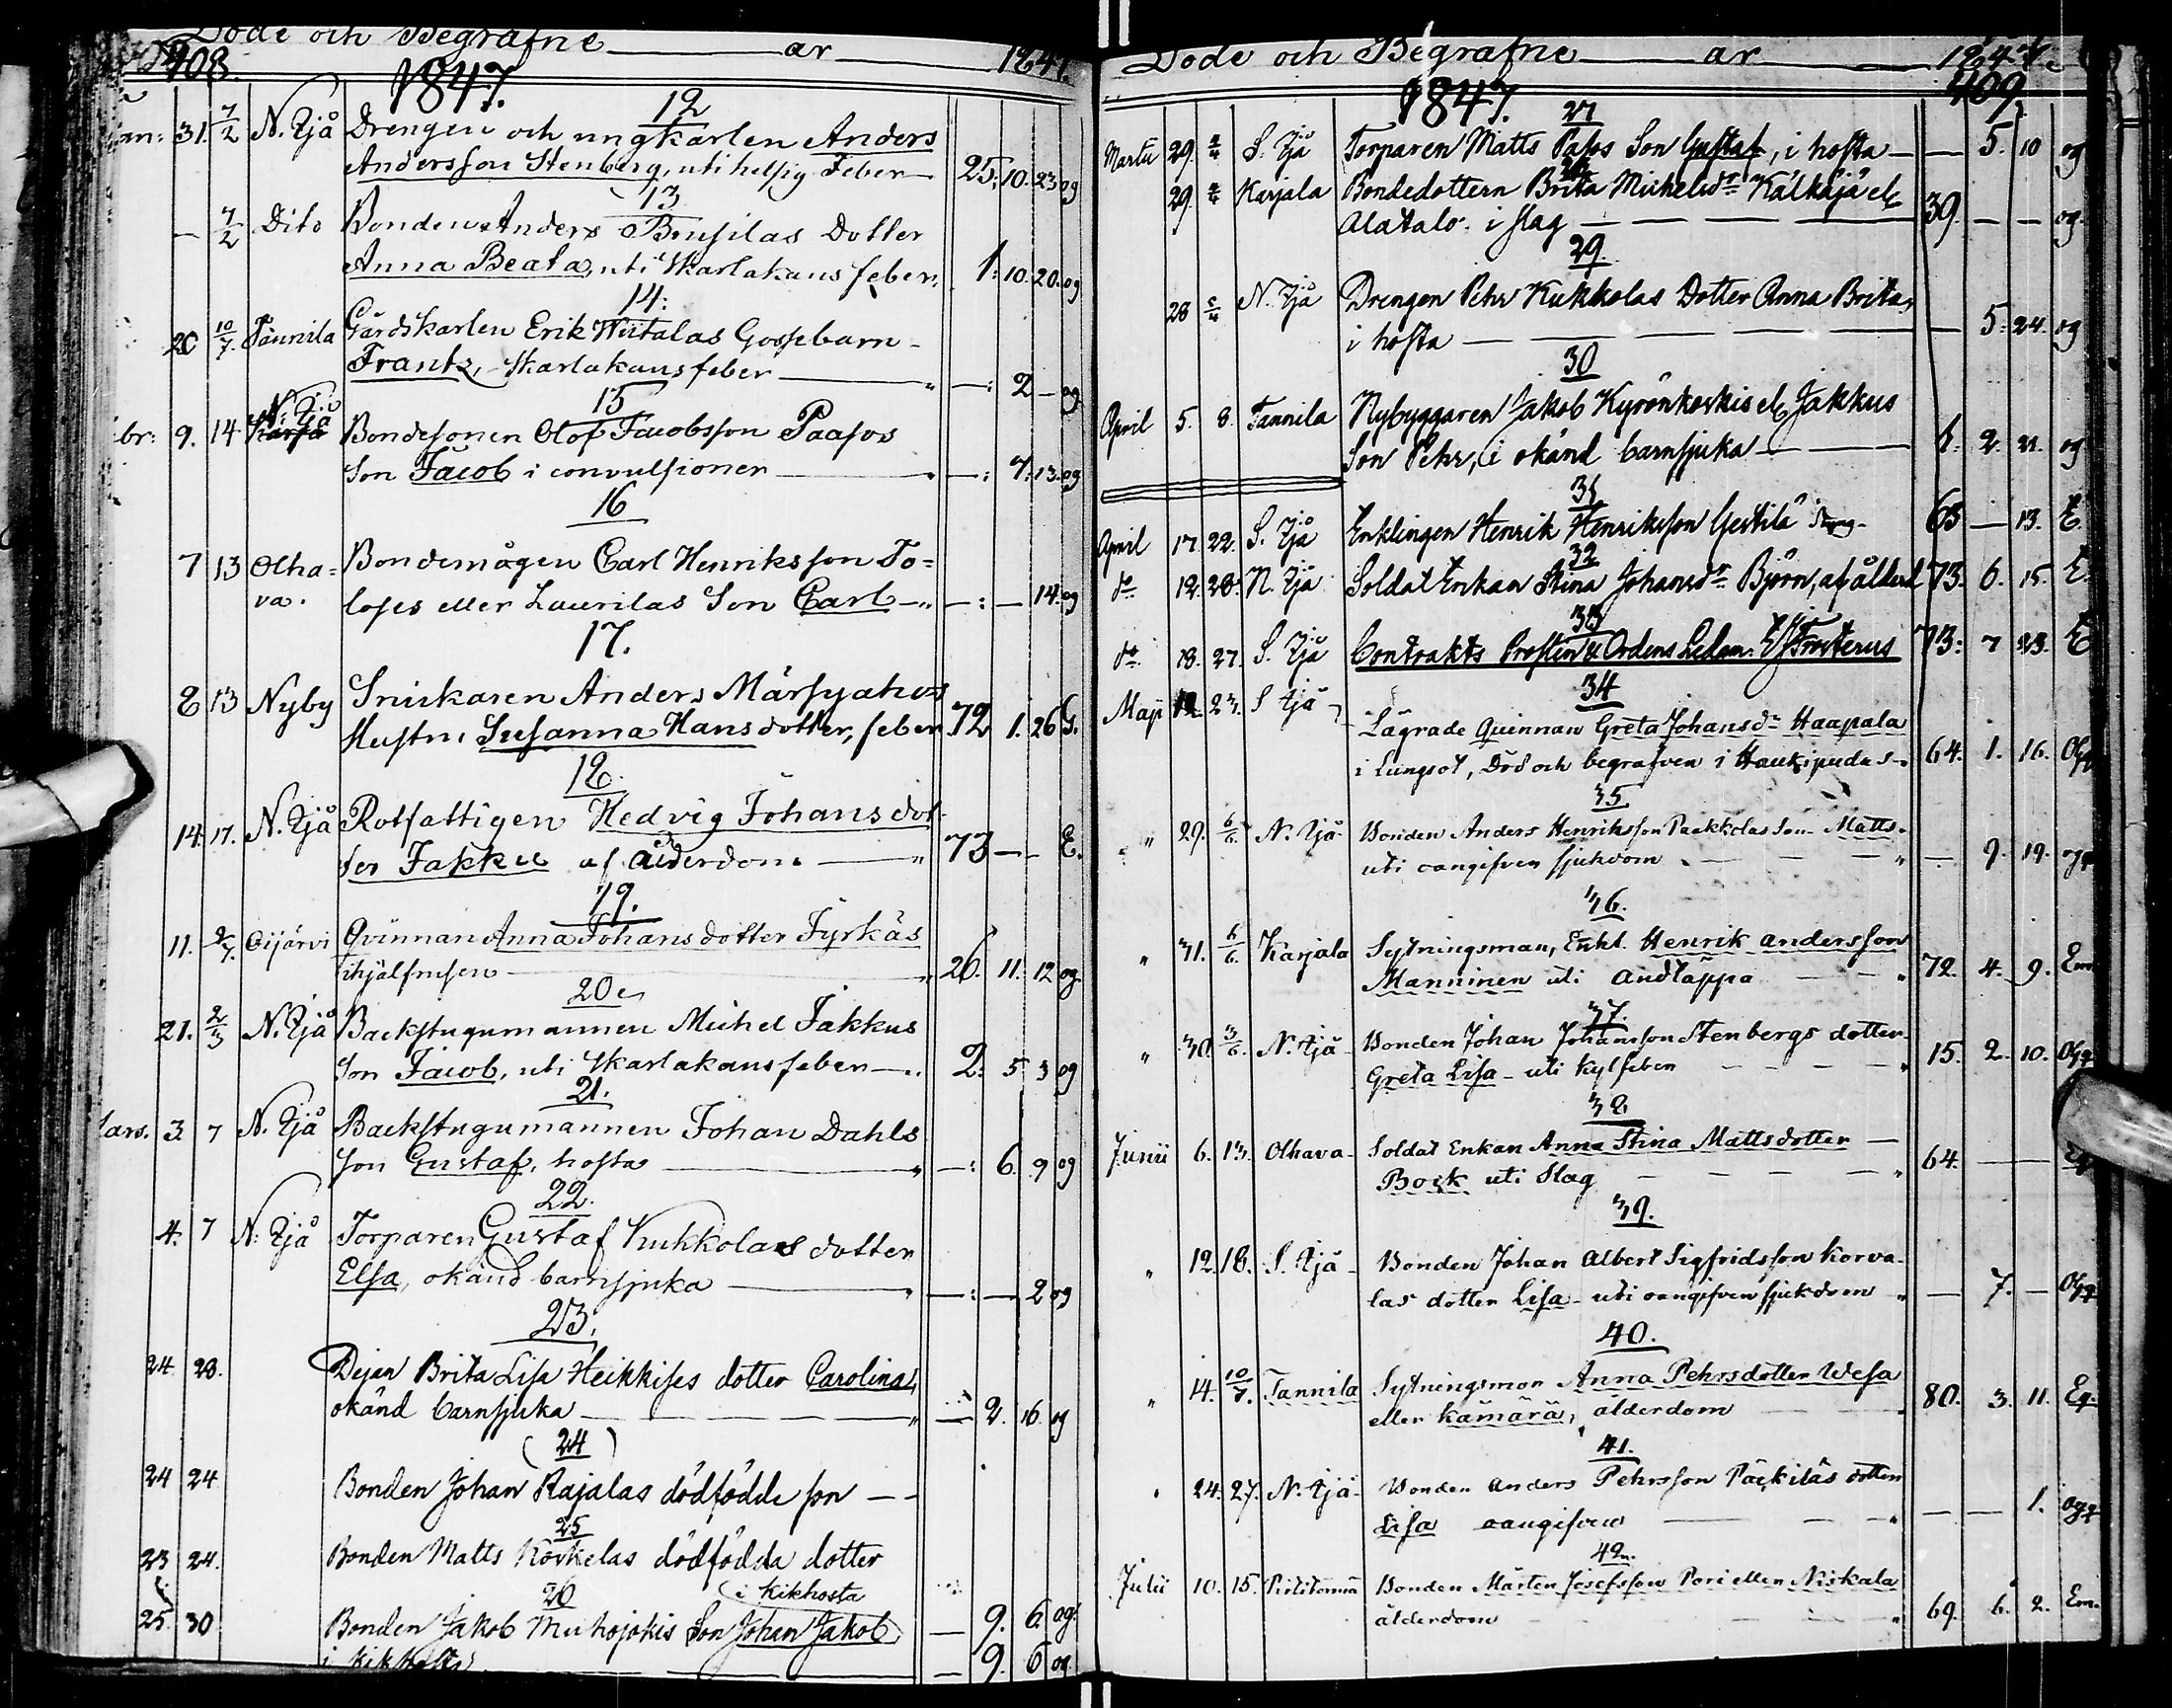 Döde och Begrafne år 1847.
408.
1847.
12
Jan: 31. 7/2 N. Ijå Drengen och ungkarlen Anders
Andersson Stenberg, uti helsig Feber 25. 10. 23 og
13
— 7/2 Dito Bonden Anders Brusilas Dotter
Anna Beata, uti Skarlakansfeber, 1. 10. 20. og
14.
20 10/7. Tannila Gårdskarlen Erik Wiitalas Gossebarn
Frantz, Skarlakansfeber —: 2 — og
15
br: 9. 14 N. Ijå Bondesonen Olof Jacobsson Paasos
Son Jacob i convulsioner —: 7. 13. og
16
7 13 Olha= Bondemågen Carl Henriksson To=
va. loses eller Laurilas Son Carl —: — 14. og
17.
8 13 Nyby Snickaren Anders Märsyahos
Hustru Susanna Hansdotter, feber 72 1. 26 G.
18.
14. 17. N. Ijå Rotfattigen Hedvig Johansdot
ter Jakku af ålderdom 73 — — E.
19.
11. 2/7. Oijärvi Qvinnan Anna Johansdotter Jyrkäs
ihjälfrusen 26. 11. 12 og
20
21. 2/3 N. Ijå Backstugumannen Michel Jakkus
Son Jacob, uti Skarlakansfeber 2. 5 3 og
21.
Mars. 3. 7 N. Ijå Backstugumannen Johan Dahls
Son Gustaf, hosta —: 6. 9 og
22.
4. 7 N. Ijå Torparen Gustaf Kukkolas dotter
Elsa, okänd barnsjuka —: — 2 og
23.
24 28. Pejan Brita Lisa Heikkises dotter Carolina,
okänd barnsjuka — 2. 16. og
(24)
24 24 Bonden Johan Rajalas dödfödde son — —
25
23 24. Bonden Matts Körkelas dödfödda dotter
26 i kikhosta
25. 30 Bonden Jakob Muhojokis Son Johan Jakob — 9. 6 og
i kikhosta — 9. 6 og
Döde och Begrafne år 1847.
409
1847.
27
Martii 29. 4/4 S. Ijå Torparen Matts Pasos Son Gustaf, i hosta — 5. 10 og
29. 4/4 Karjala Bondedottern Brita Michelsdr Kälkäjä el
Alatalo. i slag 39. — — og.
29.
28 N. Ijå Drengen Pehr Kukkolas Dotter Anna Brita,
i hosta — 5. 24. og
30
April 5. 8. Tannila Nybyggaren Jakob Kyrönkoskis el Jakkus
Son Pehr, i okänd barnsjuka 1. 2. 21. og
31
April 17. 22. S. Ijå Enklingen Henrik Henriksson Gestilä 63 — 13. E.
32
do 12. 28. N. Ijå Soldat Enkan Stina Johansdr Björn, af ålderd 73. 6. 15. E.
33
do 18. 27. S. Ijå Contrakts Prosten & Ordens Ledam. Frosterus 73. 7 23. E
34
Maji 23. S Ijå Lägrade Quinnan Greta Johansdr Haapala
i Lungsot, Död och begrafven i Haukipudas 64. 1. 16.
35.
" 29. 6/6. N. Ijå Bonden Anders Henriksson Paakkolas Son Matts
uti oangifven sjukdom — 9. 19.
36.
" 31. 6/6. Karjala Sytningsman, Enkl. Henrik andersson
Manninen uti andtäppa 72. 4. 9. Em
37.
" 30. 3/6. N. Ijå Bonden Johan Johansson Stenbergs dotter
Greta Lisa uti kylfeber 15. 2. 10. Ogg
38
Junii 6. 13. Olhava Soldat Enkan Anna Stina Mattsdotter
Bock uti Slag 64. — —
39.
" 12. 18. S. Ijå Bonden Johan Albert Sigfridsson Korva-
las dotter Lisa uti oangifven sjukdom — 7. — Ogg
40.
" 14. 10/7. Tannila Sytningsmor Anna Pehrsdotter Wesa
eller Kämärä, ålderdom 80. 3. 11. Eq.
41.
" 24. 27. N. Ijå Bonden Anders Pehrsson Päckiläs dotter
Lisa oangifven — — 1. ogg
42.
Julii 10. 15. Bonden Mårten Josefsson Pori eller Niskala
ålderdom 69. 6. 2. Em.